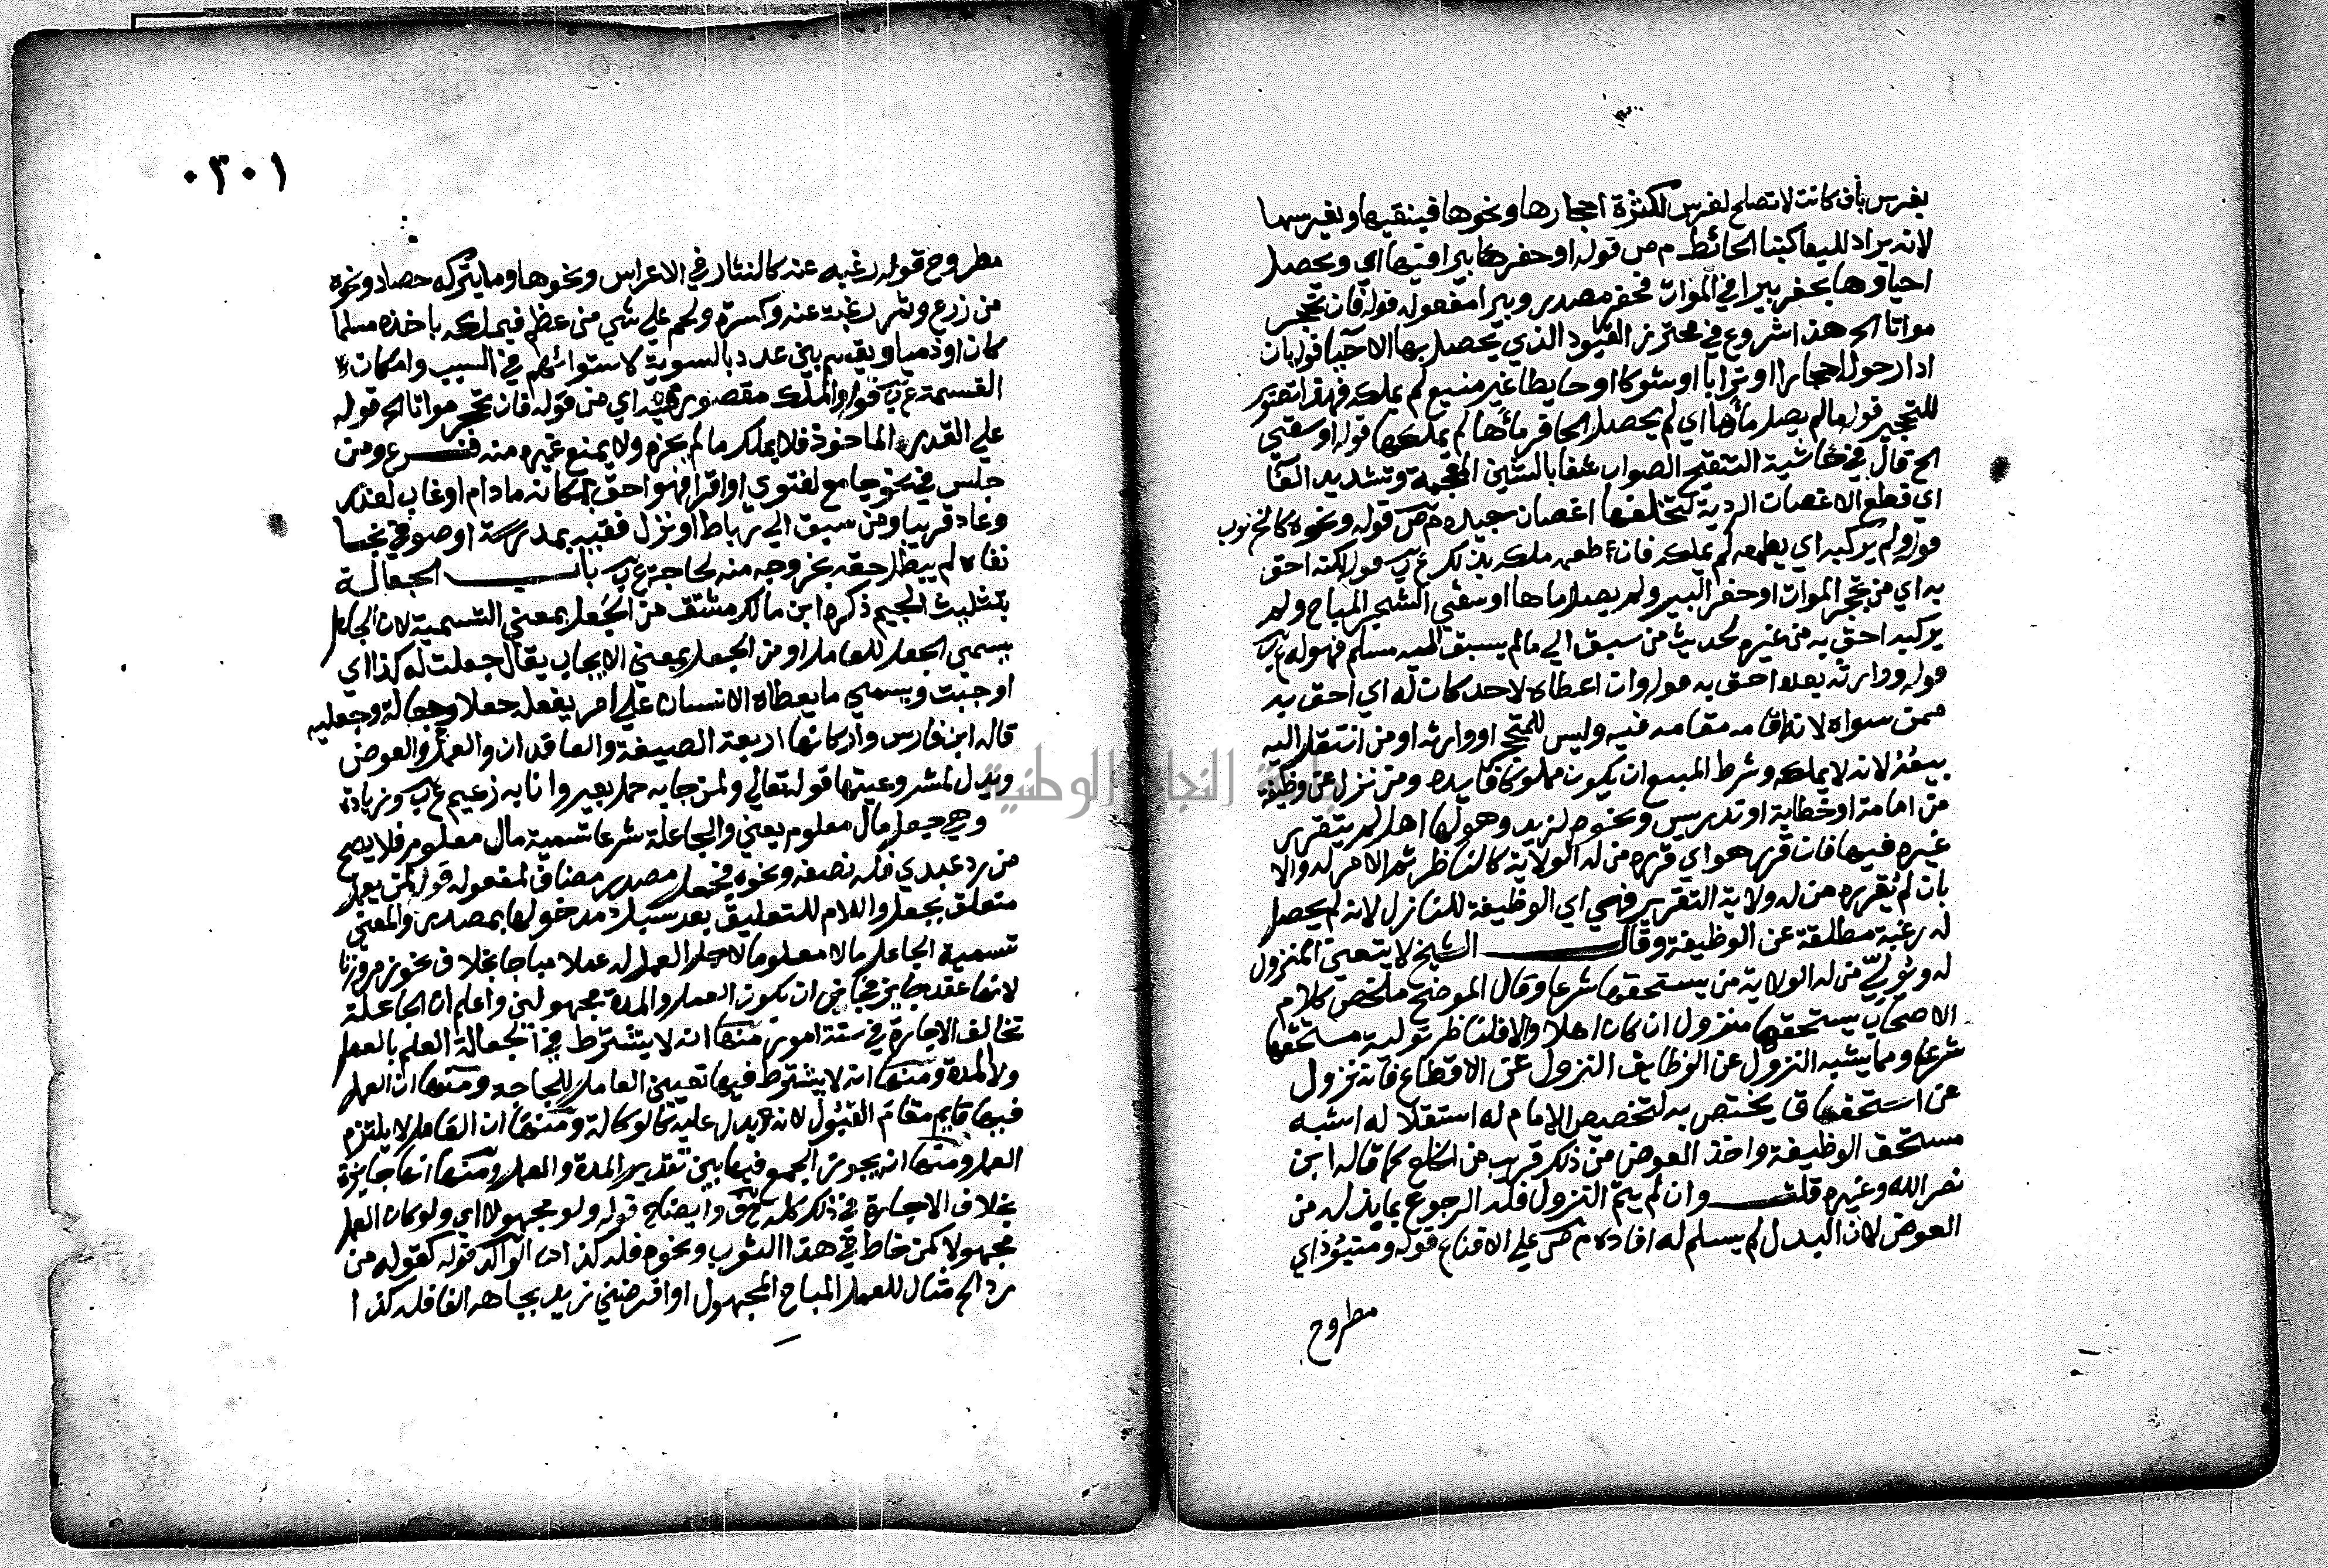 بغرس بأن كانت لا تصلح لغرس لكثرة احجارها ونحوها فينقيها ويغرسها
لانه يراد للبقا كبنا الحائط م ص قوله او حفرها بيرا فيها اي ويحصل
احياوها بحفر بيرا في الموات فحفر مصدر وبيرا مفعوله قوله فان تحجر
مواتا الخ هذا شروع في محترز القيود الذي يحصل بها الاحيا قوله بان
ادار حول احجارا او ترابا او شوكا او حايطا غير منيع لم يملكه فهذا تصوير
للتحجير قوله مالم يصل ماؤها اي لم يحصل الحافر مأها لم يملكها قوله او سقي
الخ قال في حاشية التنقيح الصواب شفا بالشين المعجمة وتشديد الفا
اي قطع الاغصان الردية لتخلفها اغصان جيدة م ص قوله ونحوه كالخرنوب
قوله ولم يركبه اي يطعمه لم يملكه فان اطعمه ملكه بذلك ع ب قوله لكنه احق
به اي من تحجر الموات او حفر البير ولم يصل ماها او سقي الشجر المباح ولم
يركبه احق به من غيره لحديث من سبق الي مالم يسبق اليه مسلم فهو له ع ب
قوله ووارثه بعده احق به قوله وان اعطاه لاحد كان له اي احق به
ممن سواه لانه اقامه مقامه فيه وليس للمتحجر او وارثه او من انتقل اليه
بيعه لانه لا يملكه وشرط المبيع ان يكون مملوكا فايدة ومن نزل عن وظيفة
من امامة او خطابة او تدريس ونحوه لزيد وهو لها اهل لم يتقرر
غيره فيها فان قرر هو اي قرره من له الولاية كالناظر تم الامر له والا
بان لم يقرره من له ولاية التقرير فهي اي الوظيفة للنازل لانه لم يحصل
له رغبة مطلقة عن الوظيفة وقال الشيخ لا يتعين المنزول
له ويولي من له الولاية من يستحقها شرعا وقال الموضح ملخص كلام
الاصحاب يستحقها منزول ان كان اهلا والا فلناظر تولية مستحقها
شرعا ومما يشبه النزول عن الوظايف النزول عن الاقطاع فانه نزول
عن استحقاق يختص به لتخصيص الامام له استقلالا اشبه
مستحق الوظيفة واخذ العوض من ذلك قريب من الخلع كما قاله ابن
نصر الله وغيره قلت وان لم يتم النزول فله الرجوع بما بذله من
العوض لان البدل لم يسلم له افاده م ص علي الاقناع قوله ومنبوذ اي
مطروح
١٠٣٠
مطروح قوله رغبة عنه كالنثار في الاعراس ونحوها وما يتركه حصاد ونحوه
من زرع وثمر رغبة عنه وكسرة ولحم علي شي من عظم فيملكه باخذه مسلما
كان او ذميا ويقسم بين عدد بالسوية لاستوائهم في السبب وامكان
القسمة ع ب قوله والملك مقصور فيه اي من قوله فان تحجر مواتا الخ قوله
علي القدر الماخوذ فلا يملك ما لم يحزه ولا يمنع غيره منه فرع ومن
جلس في نحو جامع لفتوي او اقرا فهو احق بمكانه مادام او غاب لعذر
وعاد قريبا ومن سبق الي رباط او نزل فقيه بمدرسة او صوفي بخانقاه
لم يبطل حقه بخروجه منه لحاجة ع ب باب الجعالة
بتثليث الجيم ذكره ابن مالك مشتق من الجعل بمعني التسمية لان الجاعل
يسمي الجعل للعامل او من الجعل بمعني الايجاب يقال جعلت له كذا اي
اوجبت ويسمي ما يعطاه الانسان علي امر يفعله جعلا وجعالة وجعيلة
قاله ابن فارس واركانها اربعة الصيغة والعاقدان والعمل والعوض
ويدل لمشروعيتها قوله تعالي ولمن جا به حمل بعير وانا به زعيم ع ب وزيادة
وهي جعل مال معلوم يعني والجاعلة شرعا تسمية مال معلوم فلا يصح
من رد عبدي فله نصفه ونحوه فجعل مصدر مضاف لمفعوله قوله لمن يعمل
متعلق بجعل واللام للتعليق بعد سبك مدخولها بمصدر والمعني
تسمية الجاعل مالا معلوما لاجل العمل له عملا مباحا بخلاف نحو زمر وزنا
لانها عقد جايز فجاز ان يكون العمل والمدة مجهولين واعلم ان الجاعلة
تخالف الاجارة في ستة امور منها انه لا يشترط في الجعالة العلم بالعمل
ولا المدة ومنها انه لا يشترط فيها تعيين العامل للحاجة ومنها ان العمل
فيها قايم مقام القبول لانه يدل عليه كالوكالة ومنها ان العامل لا يلتزم
العمل ومنها انه يجوز الجمع فيها بين تقدير المدة والعمل ومنها انها جايزة
بخلاف الاجارة في ذلك كله ح ق وايضاح قوله ولو مجهولا اي ولو كان العمل
مجهولا كمن خاط في هذا الثوب ونحوه فله كذا قوله كقوله من
رد الخ مثال للعمل المباح المجهول او اقرضني زيد بجاهه الفا فله كذا
جامعة النجاح الوطنية